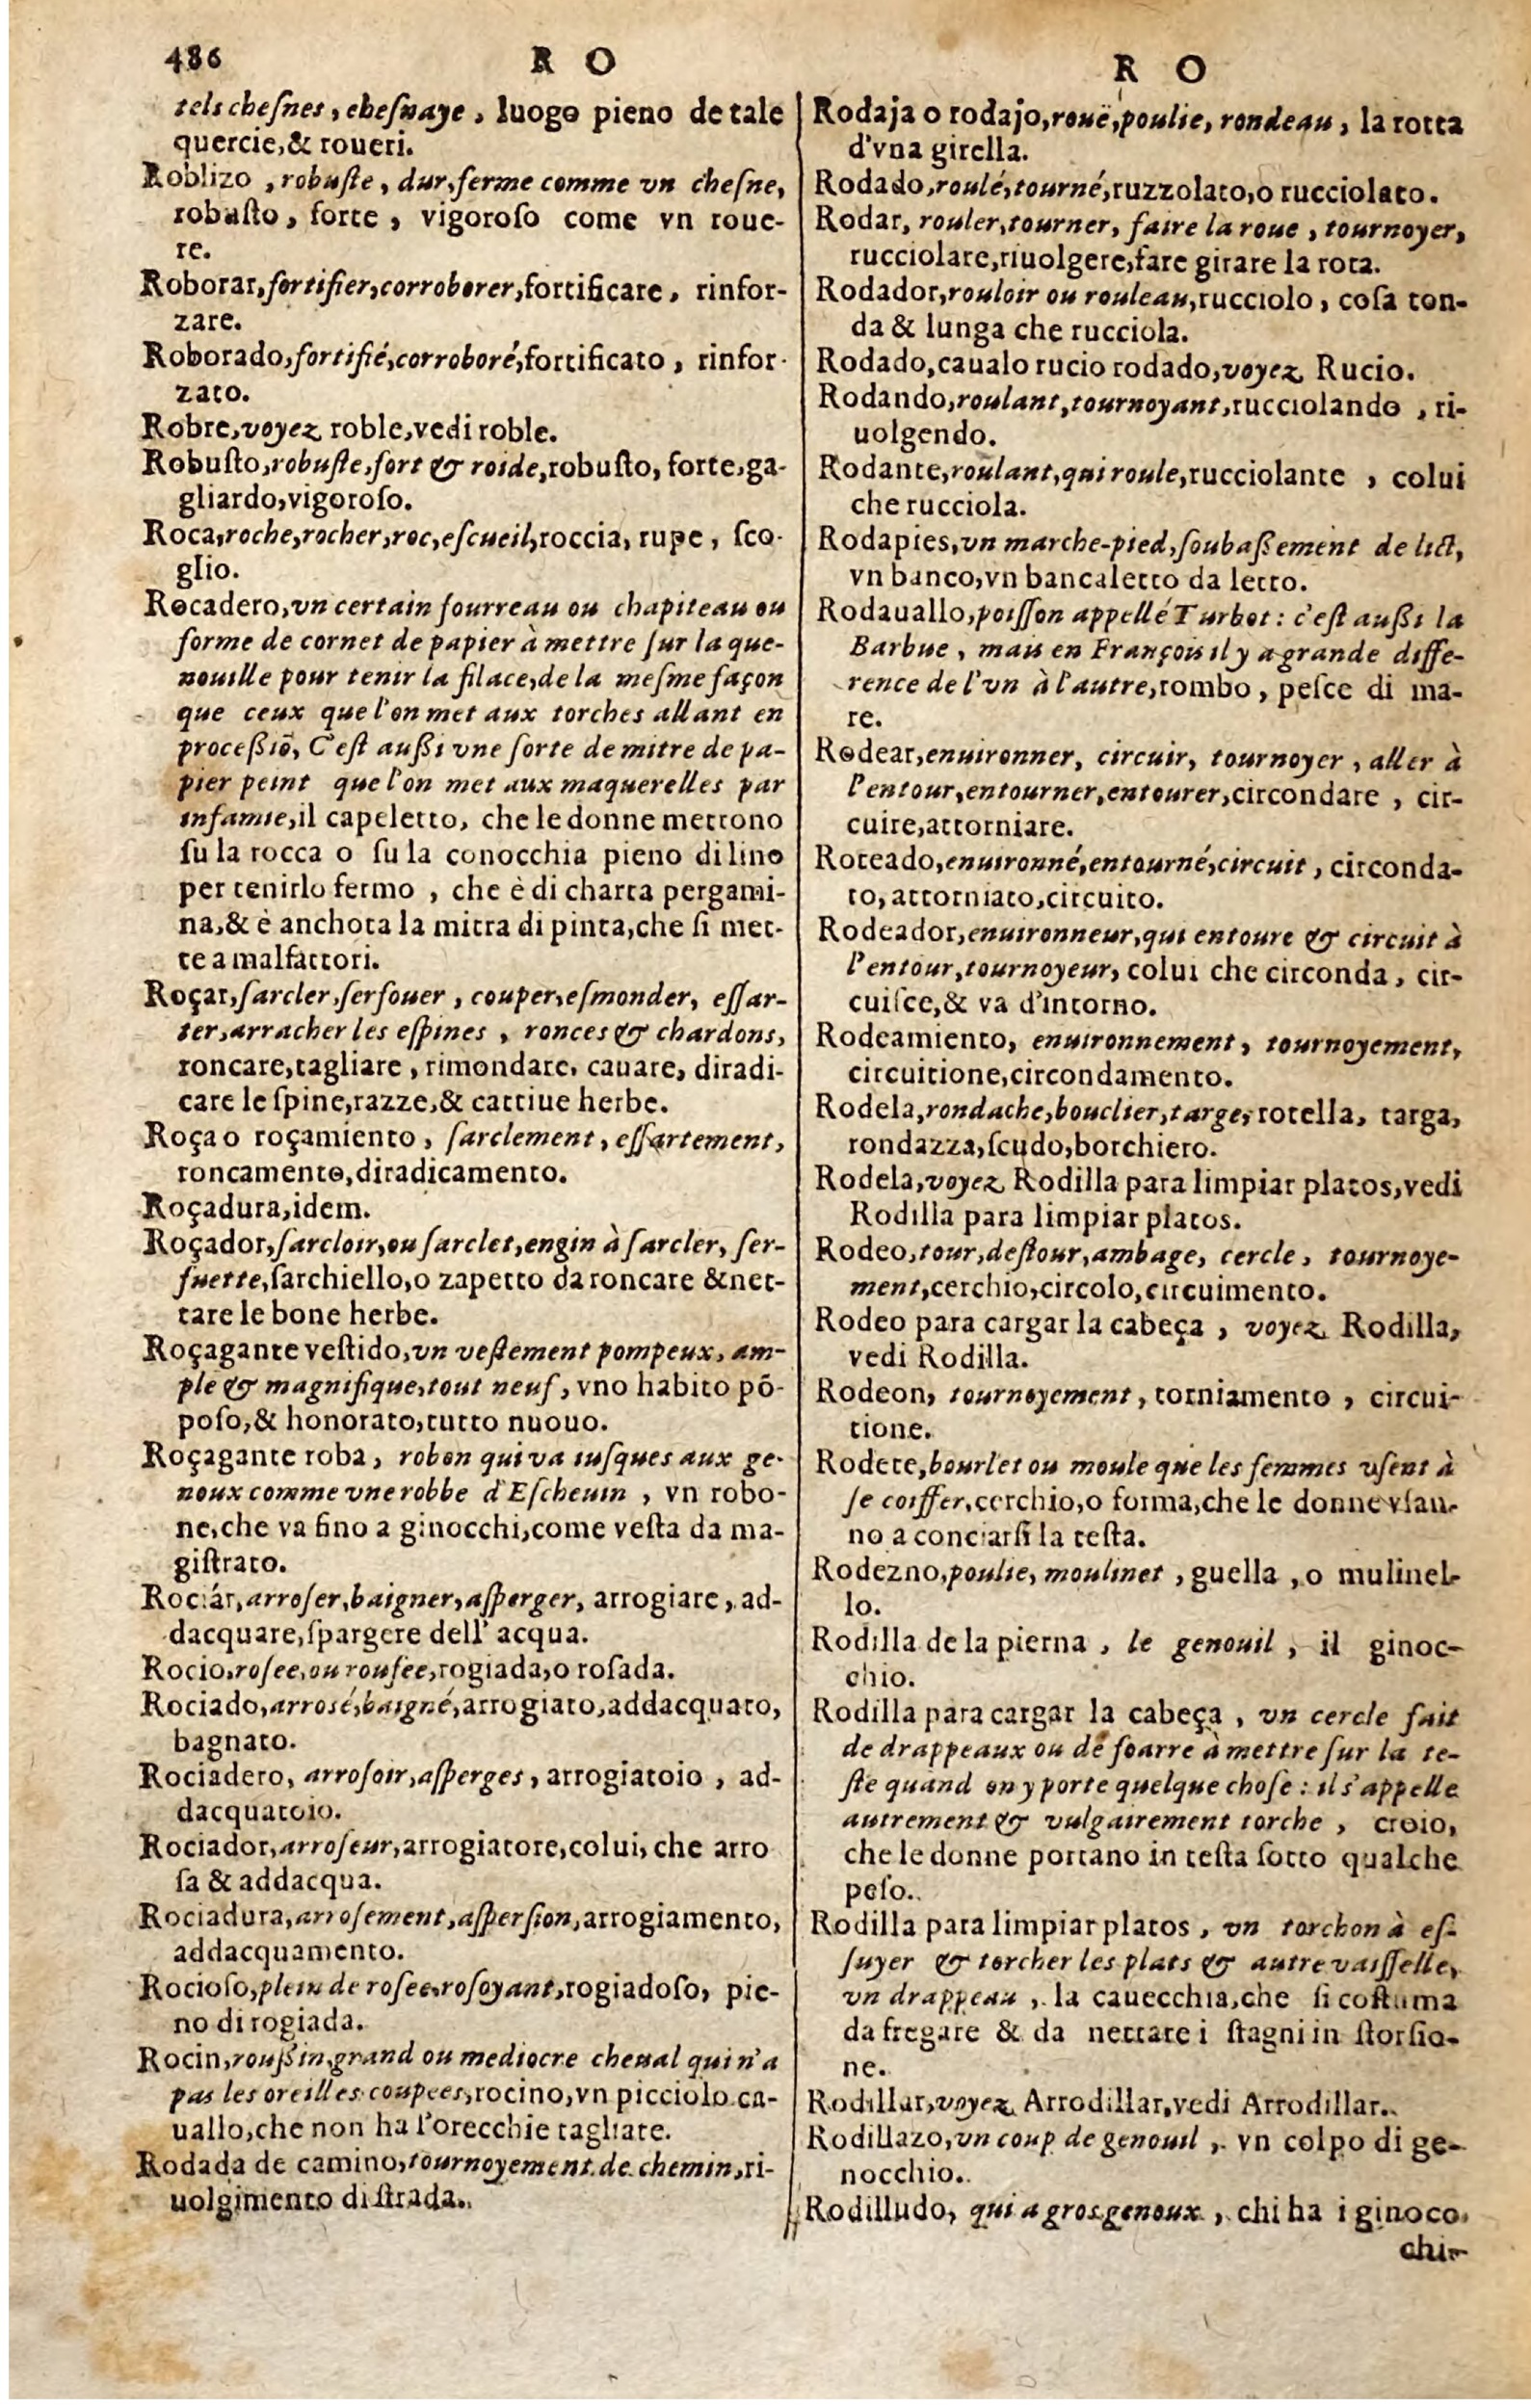 486
R O
tels chesnes, chesnaye, luogo pieno de tale
quercie,& roueri.
Roblizo, robuste, dur, ferme comme vn chesne,
robusto, forte, vigoroso come vn roue-
re.
Roborar, fortifier, corroborer, fortificare, rinfor-
zare.
Roborado, fortifié, corroboré, fortificato, rinfor-
zato.
Robre, voyez roble, vedi roble.
Robusto, robuste, fort & roide, robusto, forte, ga-
gliardo, vigoroso.
Roca, roche, rocher, roc, escueil, roccia, rupe, sco-
glio.
Rocadero, vn certain fourreau ou chapiteau ou
forme de cornet de papier à mettre sur la que-
nouille pour tenir la filace, de la mesme façon
que ceux que l'on met aux torches allant en
processiō, C'est aussi vne sorte de mitre de pa-
pier peint que l'on met aux maquerelles par
infamie, il capeletto, che le donne mettono
su la rocca o su la conocchia pieno di lino
per tenirlo fermo, che è di charta pergami-
na,& è anchora la mitra di pinta, che si met-
te a malfattori.
Roçar, sarcler, serfouer, couper, esmonder, essar-
ter, arracher les espines, ronces & chardons,
roncare, tagliare, rimondare, cauare, diradi-
care le spine, razze,& cattiue herbe.
Roça o roçamiento, sarclement, essartement,
roncamento, diradicamento.
Roçadura, idem.
Roçador, sarcloir, ou sarclet, engin à sarcler, ser-
fuette, sarchiello, o zapetto da roncare & net-
tare le bone herbe.
Roçagante vestido, vn vestement pompeux, am-
ple & magnifique, tout neuf, vno habito pō-
poso,& honorato, tutto nuouo.
Roçagante roba, robon qui va iusques aux ge-
noux comme vne robbe d'Escheuin, vn robo-
ne, che va fino a ginocchi, come vesta da ma-
gistrato.
Rociár, arroser, baigner, asperger, arrogiare, ad-
dacquare, spargere dell' acqua.
Rocio, rosee, ou rousee, rogiada, o rosada.
Rociado, arrosé, baigné, arrogiato, addacquato,
bagnato.
Rociadero, arrosoir, asperges, arrogiatoio, ad-
dacquatoio.
Rociador, arroseur, arrogiatore, colui, che arro
sa & addacqua.
Rociadura, arrosement, aspersion, arrogiamento,
addacquamento.
Rocioso, plein de rosee, rosoyant, rogiadoso, pie-
no di rogiada.
Rocin, roussin, grand ou mediocre cheual qui n'a
pas les oreilles coupees, rocino, vn picciolo ca-
uallo, che non ha l'orecchie tagliate.
Rodada de camino, tournoyement de chemin, ri-
uolgimento di strada.
R O
Rodaja o rodajo, rouë, poulie, rondeau, la rotta
d'vna girella.
Rodado, roulé, tourné, ruzzolato, o rucciolato.
Rodar, rouler, tourner, faire la roue, tournoyer,
rucciolare, riuolgere, fare girare la rota.
Rodador, rouloir ou rouleau, rucciolo, cosa ton-
da & lunga che rucciola.
Rodado, caualo rucio rodado, voyez Rucio.
Rodando, roulant, tournoyant, rucciolando, ri-
uolgendo.
Rodante, roulant, qui roule, rucciolante, colui
che rucciola.
Rodapies, vn marche-pied, soubassement de lict,
vn banco, vn bancaletto da letto.
Rodauallo, poisson appellé Turbot: c'est aussi la
Barbue, mais en François il y a grande diffe-
rence de l'vn à l'autre, rombo, pesce di ma-
re.
Rodear, enuironner, circuir, tournoyer, aller à
l'entour, entourner, entourer, circondare, cir-
cuire, attorniare.
Roteado, enuironné, entourné, circuit, circonda-
to, attorniato, circuito.
Rodeador, enuironneur, qui entoure & circuit à
l'entour, tournoyeur, colui che circonda, cir-
cuisce,& va d'intorno.
Rodeamiento, enuironnement, tournoyement,
circuitione, circondamento.
Rodela, rondache, bouclier, targe, rotella, targa,
rondazza, scudo, borchiero.
Rodela, voyez Rodilla para limpiar platos, vedi
Rodilla para limpiar platos.
Rodeo, tour, destour, ambage, cercle, tournoye-
ment, cerchio, circolo, circuimento.
Rodeo para cargar la cabeça, voyez Rodilla,
vedi Rodilla.
Rodeon, tournoyement, torniamento, circui-
tione.
Rodete, bourlet ou moule que les femmes vsent à
se coiffer, cerchio, o forma, che le donne vsan-
no a conciarsi la testa.
Rodezno, poulie, moulinet, guella, o mulinel-
lo.
Rodilla de la pierna, le genouil, il ginoc-
chio.
Rodilla para cargar la cabeça, vn cercle fait
de drappeaux ou de foarre à mettre sur la te-
ste quand on y porte quelque chose: il s'appelle
autrement & vulgairement torche, croio,
che le donne portano in testa sotto qualche
peso.
Rodilla para limpiar platos, vn torchon à es-
suyer & torcher les plats & autre vaisselle,
vn drappeau, la cauecchia, che si costuma
da fregare & da nettare i stagni in storsio-
ne.
Rodillar, voyez Arrodillar, vedi Arrodillar.
Rodillazo, vn coup de genouil, vn colpo di ge-
nocchio.
Rodilludo, qui a gros genoux, chi ha i ginoco
chi-